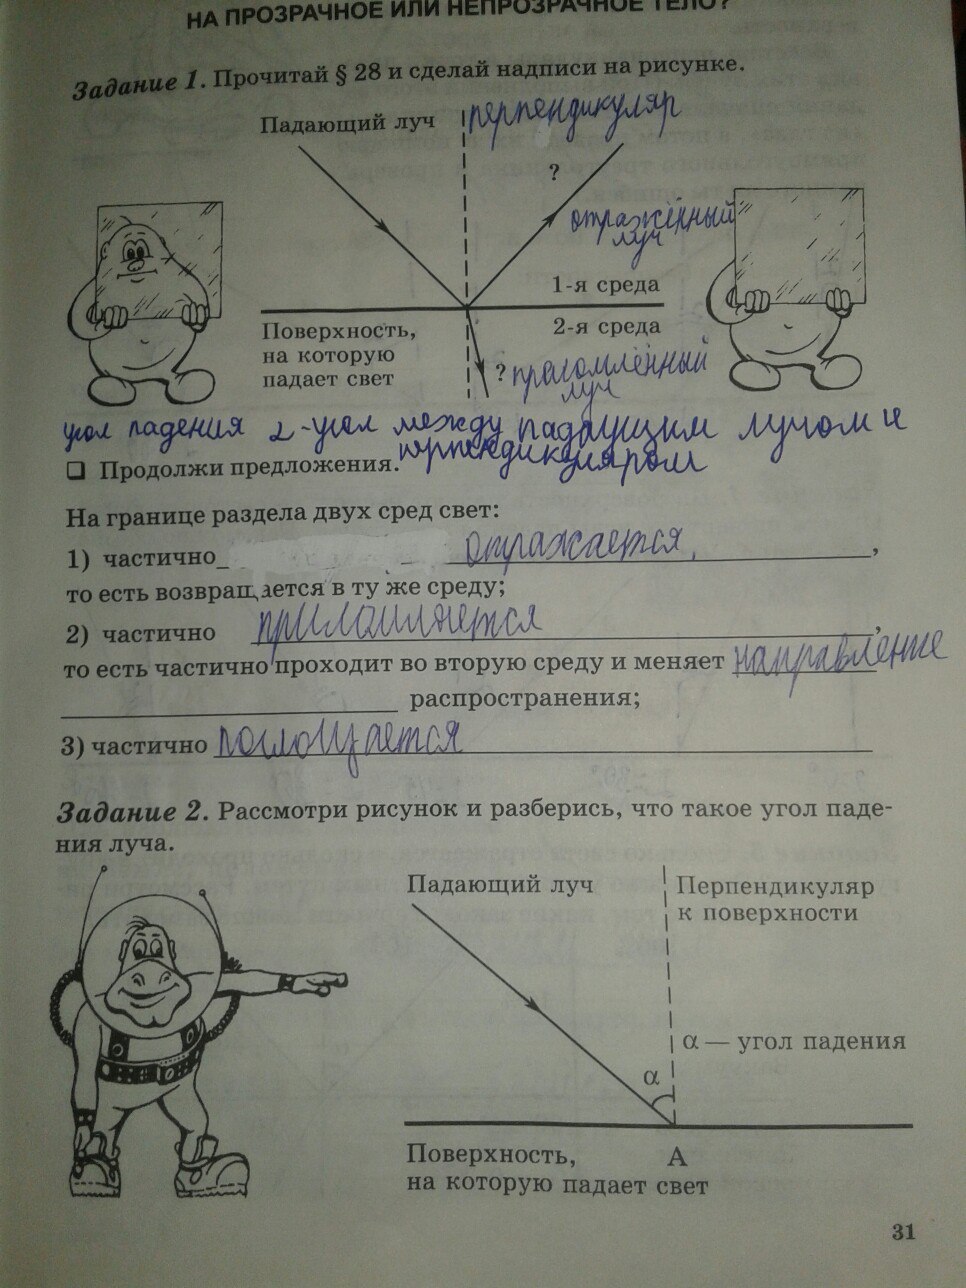 НА ПРОЗРАЧНОЕ ИЛИ НЕПРОЗРАЧНОЕ ТЕЛО?
Задание 1. Прочитай § 28 и сделай надписи на рисунке.
Падающий луч перпендикуляр
?
отражённый
луч
1-я среда
Поверхность,
на которую
падает свет
2-я среда
? преломлённый
луч
угол падения 2-угол между падающим лучом и
перпендикуляром
❑ Продолжи предложения.
На границе раздела двух сред свет:
1) частично отражается,
то есть возвращается в ту же среду;
2) частично приломляется,
то есть частично проходит во вторую среду и меняет направление
распространения;
3) частично поглощается
Задание 2. Рассмотри рисунок и разберись, что такое угол паде-
ния луча.
Падающий луч
Перпендикуляр
к поверхности
α — угол падения
α
Поверхность, A
на которую падает свет
31